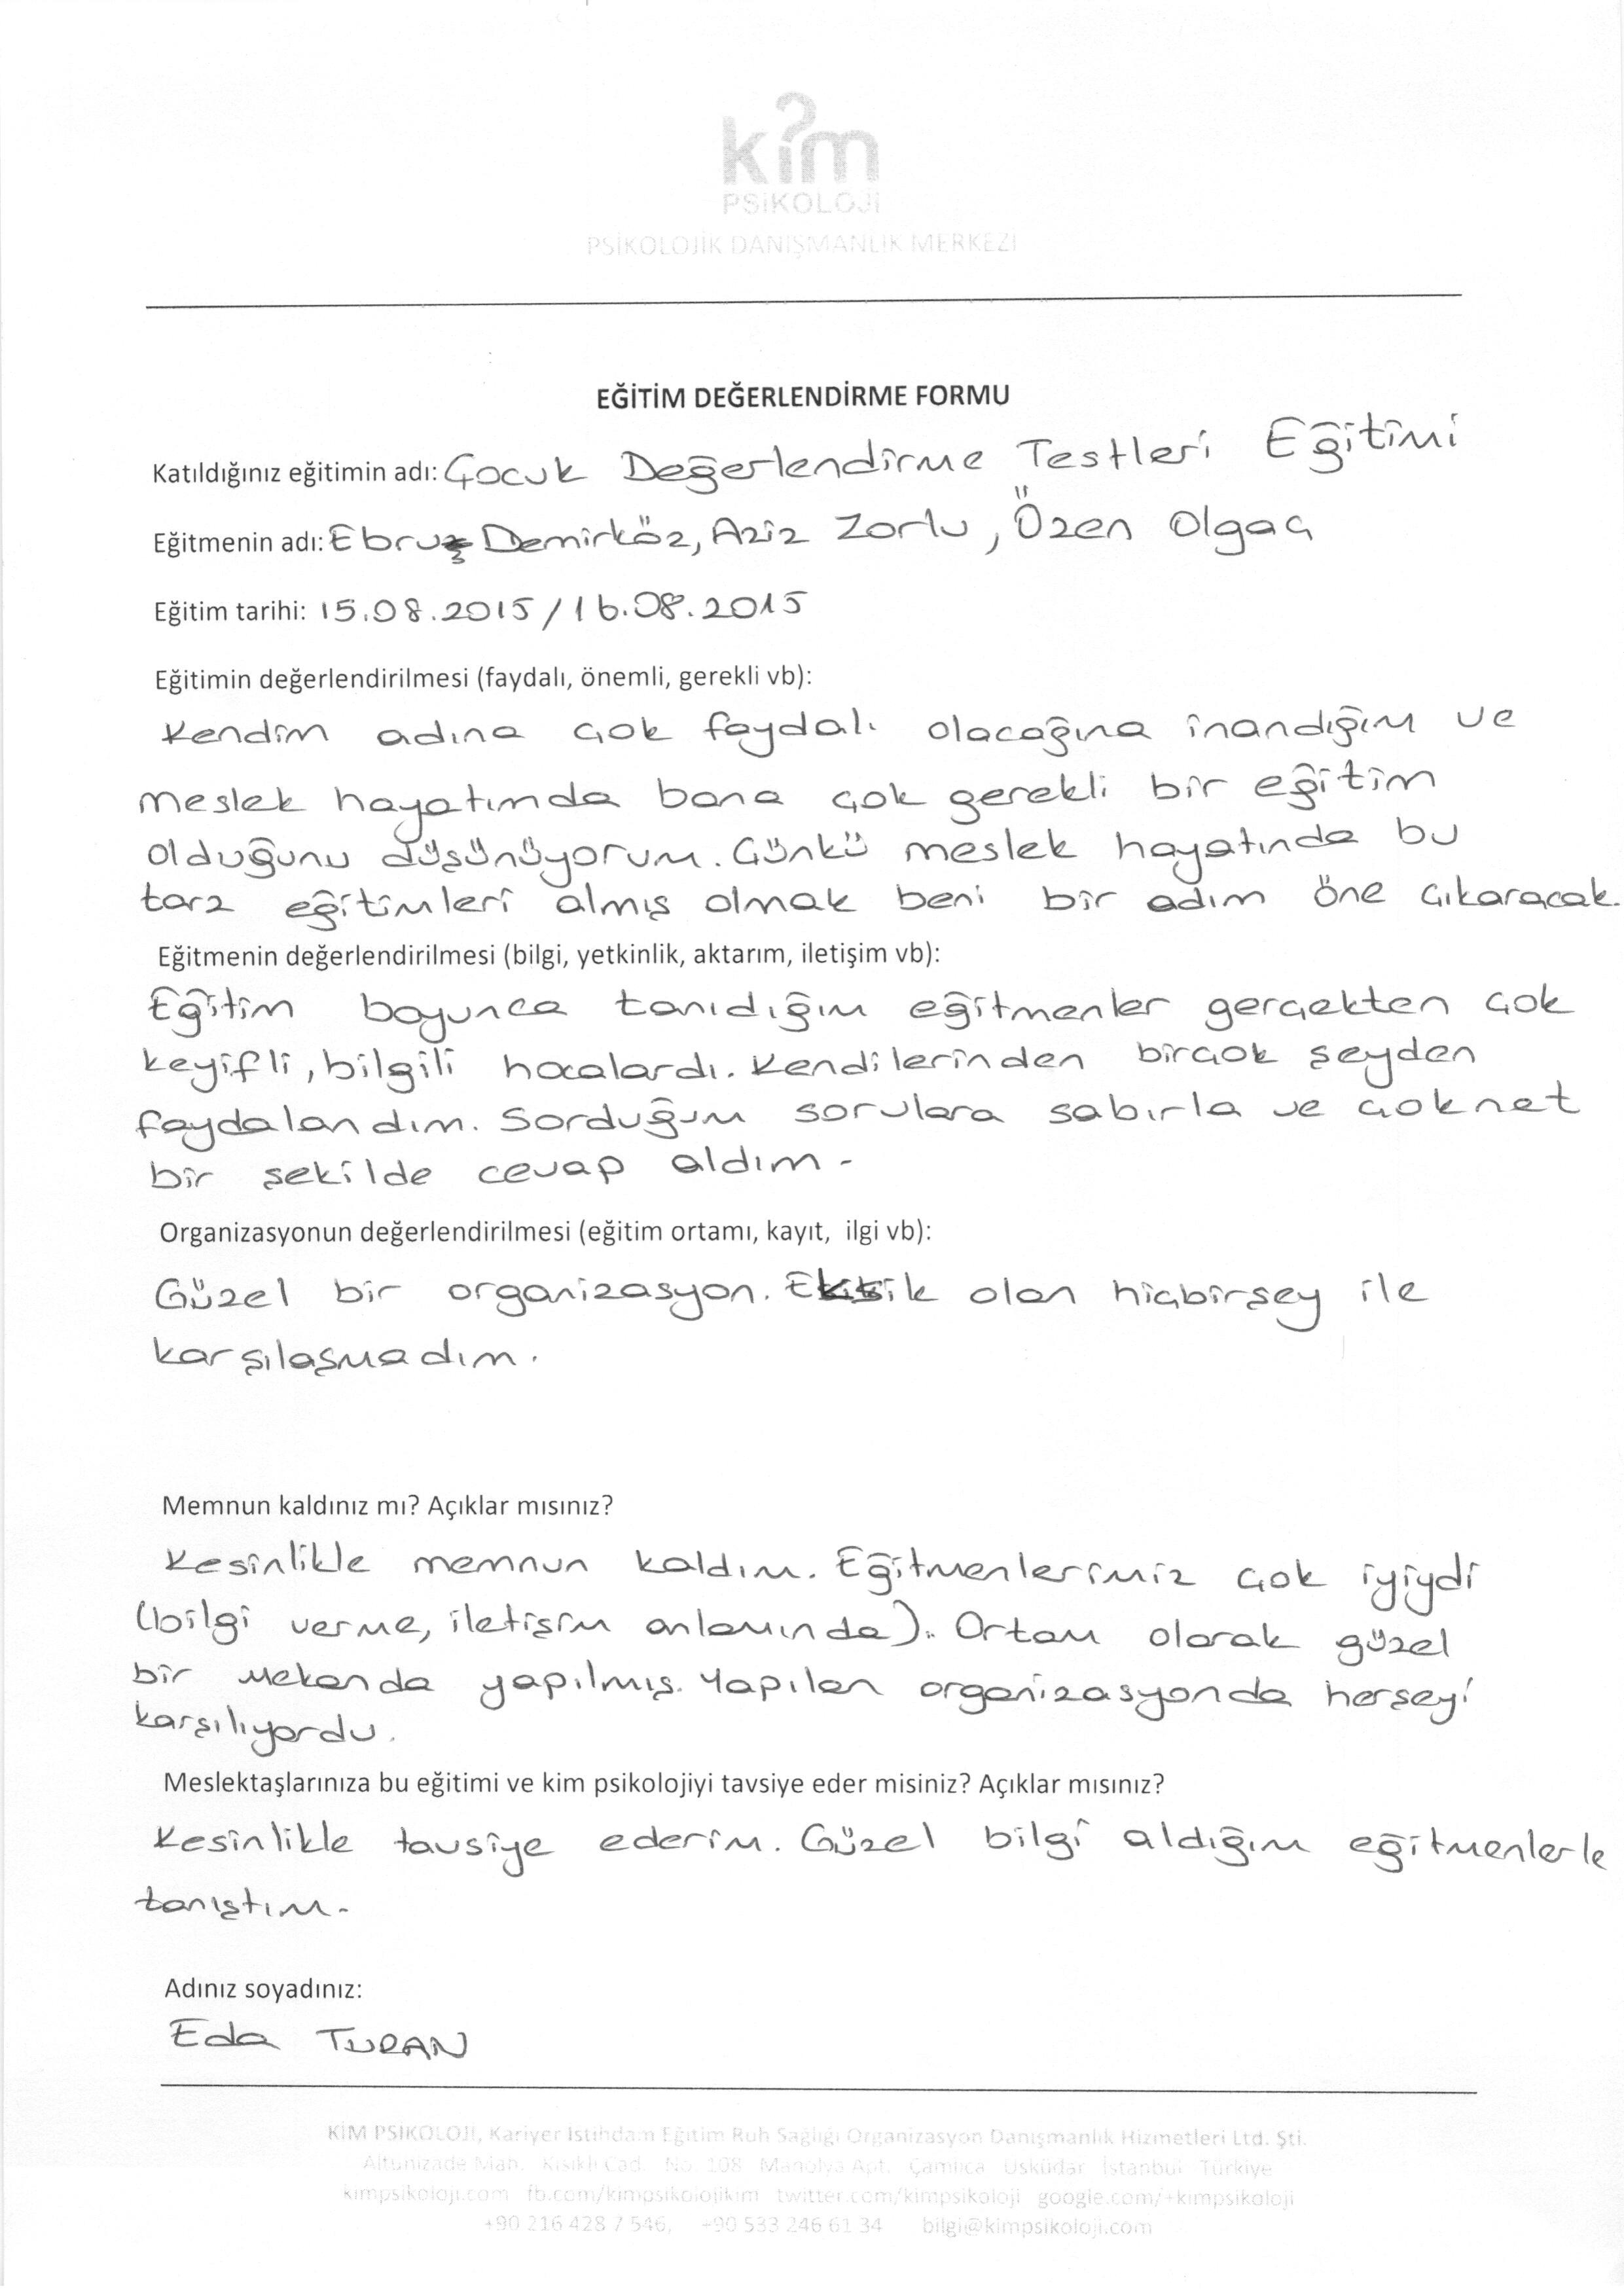 kim
PSİKOLOJİ
PSİKOLOJİK DANIŞMANLIK MERKEZİ
EĞİTİM DEĞERLENDİRME FORMU
Katıldığınız eğitimin adı: Çocuk Değerlendirme Testleri Eğitimi
Eğitmenin adı: Ebru Demirköz, Aziz Zorlu, Özen Olgaç
Eğitim tarihi: 15.08.2015 / 16.08.2015
Eğitimin değerlendirilmesi (faydalı, önemli, gerekli vb):
Kendim adına çok faydalı olacağına inandığım ve
meslek hayatımda bana çok gerekli bir eğitim
olduğunu düşünüyorum. Çünkü meslek hayatında bu
tarz eğitimleri almış olmak beni bir adım öne çıkaracak.
Eğitmenin değerlendirilmesi (bilgi, yetkinlik, aktarım, iletişim vb):
Eğitim boyunca tanıdığım eğitmenler gerçekten çok
keyifli, bilgili hocalardı. Kendilerinden birçok şeyden
faydalandım. Sorduğum sorulara sabırla ve çok net
bir şekilde cevap aldım.
Organizasyonun değerlendirilmesi (eğitim ortamı, kayıt, ilgi vb):
Güzel bir organizasyon. Eksik olan hiçbirşey ile
karşılaşmadım.
Memnun kaldınız mı? Açıklar mısınız?
Kesinlikle memnun kaldım. Eğitmenlerimiz çok iyiydi
(bilgi verme, iletişim anlamında). Ortam olarak güzel
bir mekanda yapılmış. Yapılan organizasyonda herşeyi
karşılıyordu.
Meslektaşlarınıza bu eğitimi ve kim psikolojiyi tavsiye eder misiniz? Açıklar mısınız?
Kesinlikle tavsiye ederim. Güzel bilgi aldığım eğitmenlerle
tanıştım.
Adınız soyadınız:
Eda TURAN
KİM PSİKOLOJİ, Kariyer İstihdam Eğitim Ruh Sağlığı Organizasyon Danışmanlık Hizmetleri Ltd. Şti.
Altunizade Mah. Kısıklı Cad. No. 108 Manolya Apt. Çamlıca Üsküdar İstanbul Türkiye
kimpsikoloji.com fb.com/kimpsikolojikim twitter.com/kimpsikoloji google.com/+kimpsikoloji
+90 216 428 7 546, +90 533 246 61 34 bilgi@kimpsikoloji.com